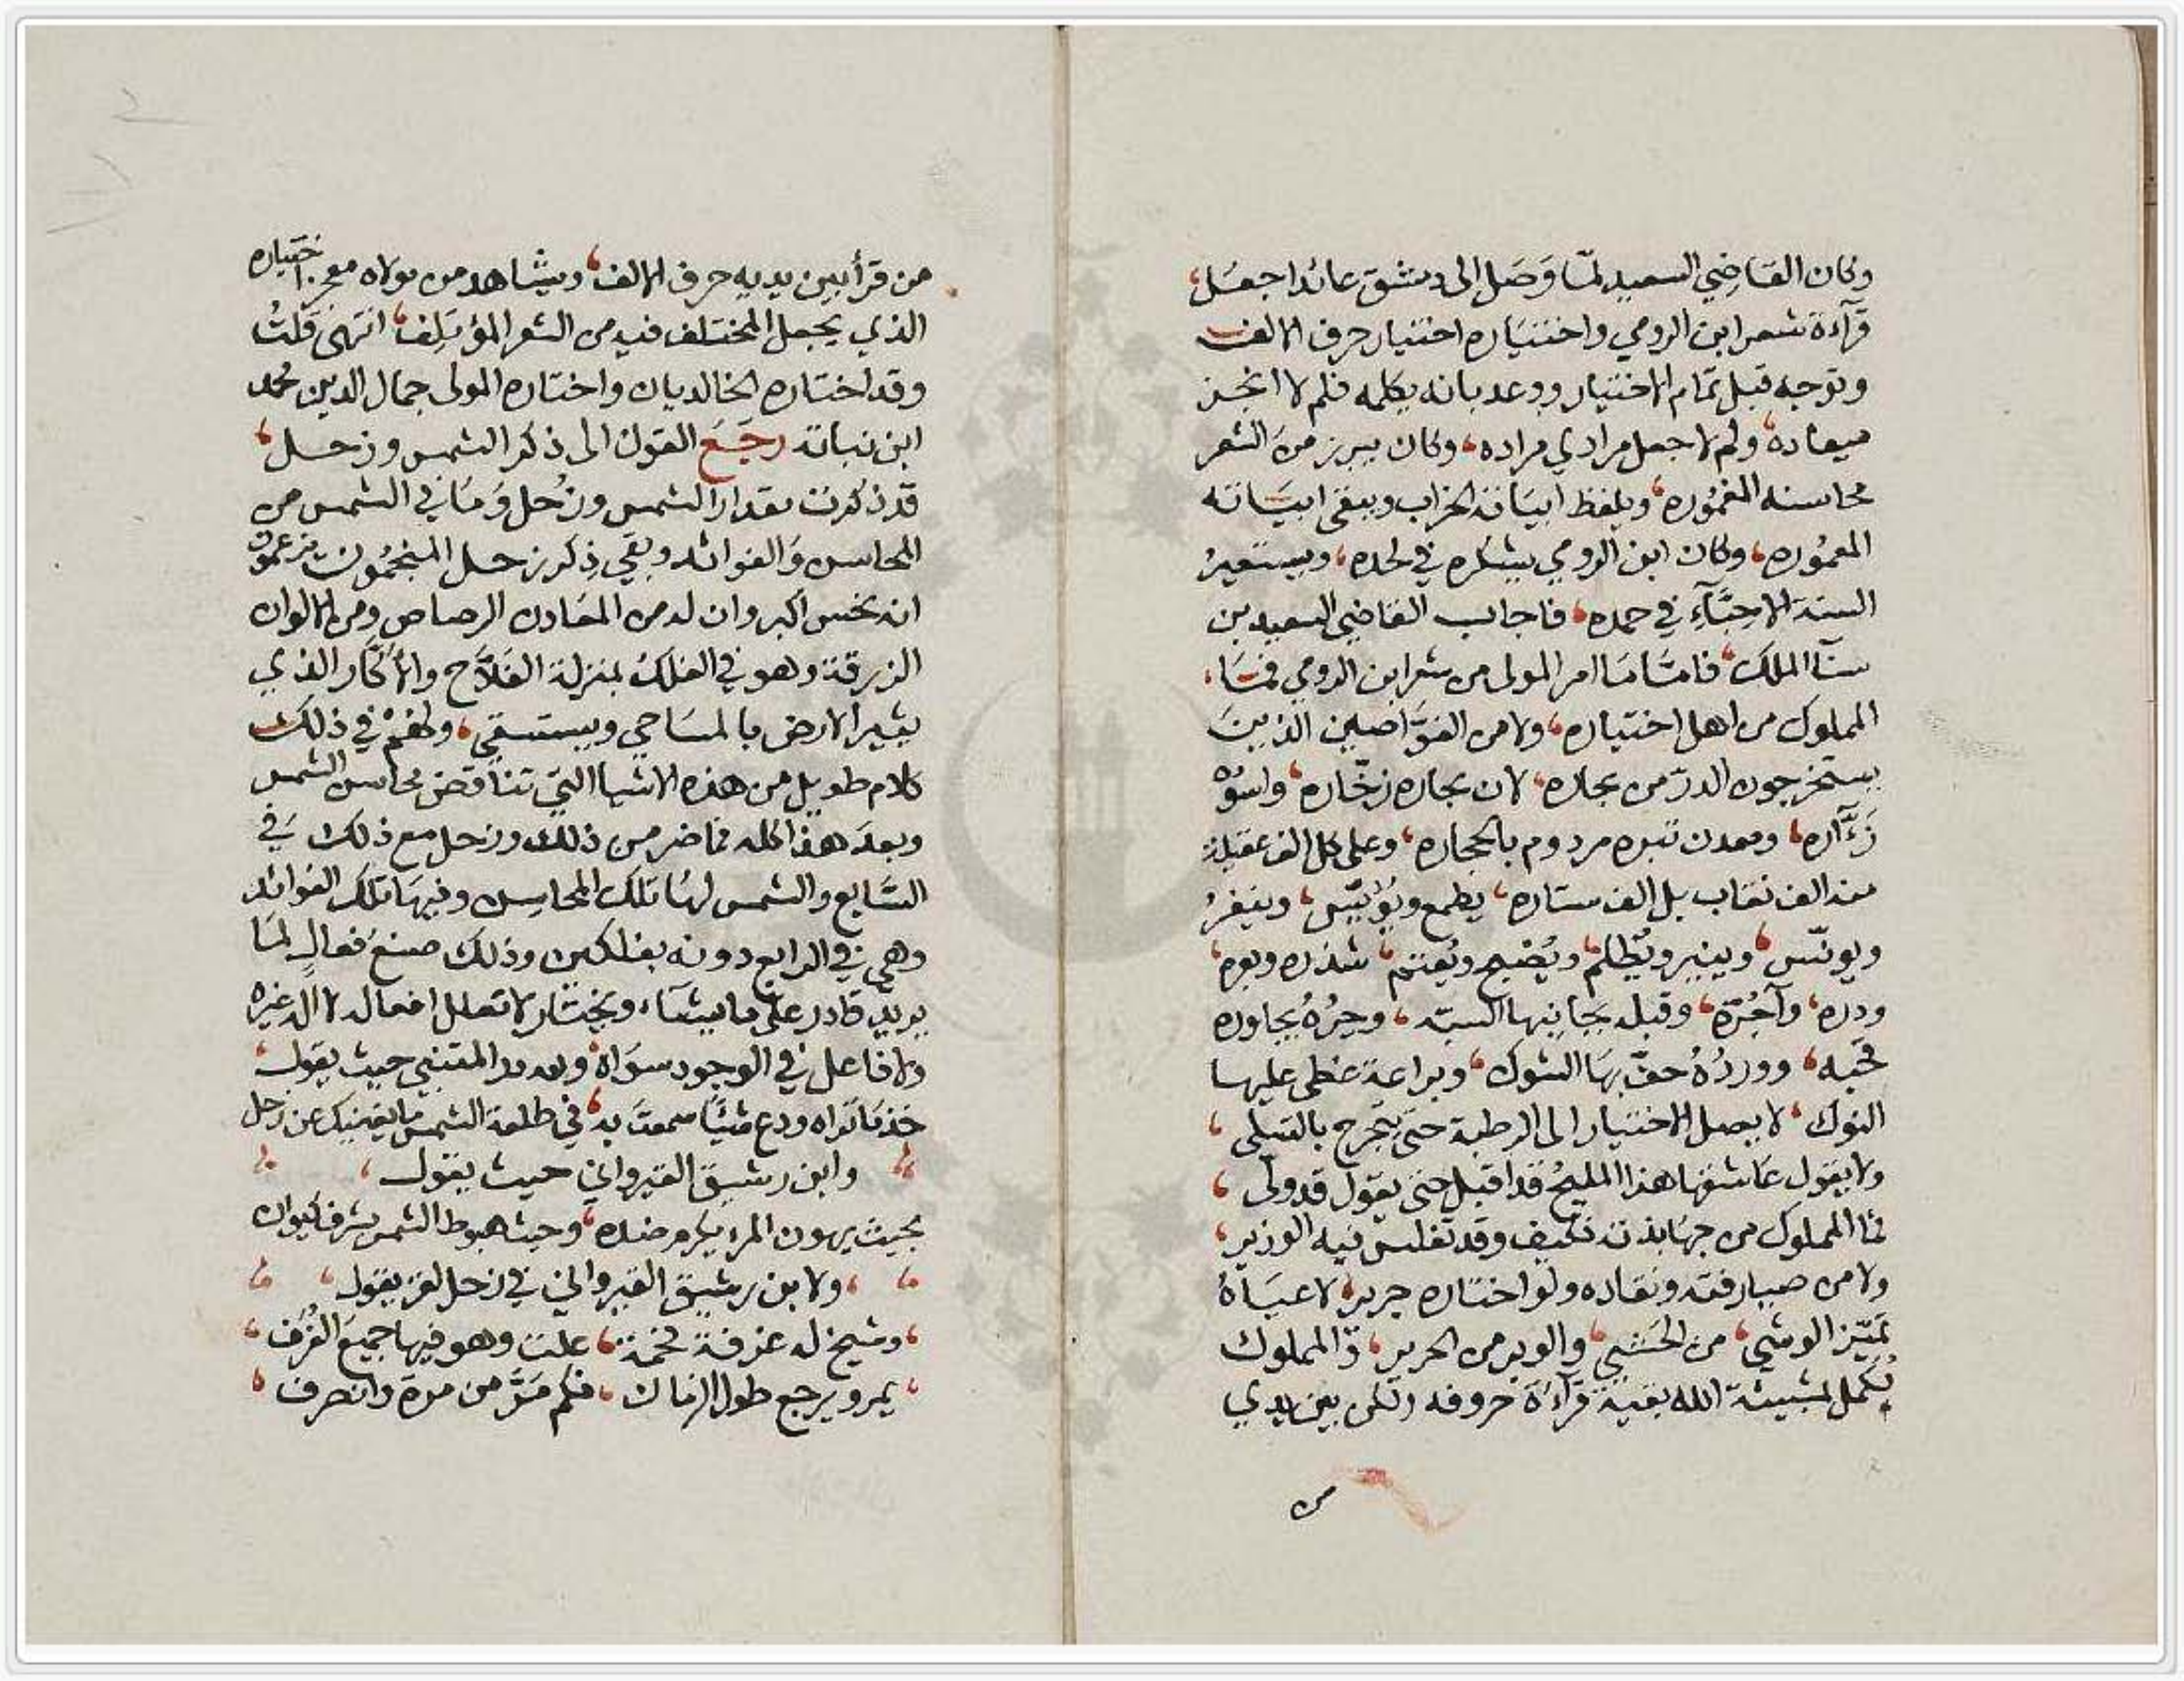 وكان القاضي السعيد لمّا وَصَل إلى دمشق عائدا جعَل،
قرآءة شعر ابن الرومي واختيَاره اختيار حرف الالف
وتوجه قبل تمام الاختيار ووعد بانه يكمله فلم لا انجز
ميعاده، ولم لا جعل مرادي مراده، وكان يبرز من الشعر
محاسنه المغمُوره، ويلفظ ابيَاته الخراب ويبقى ابيَاته
المعمُوره، وكان ابن الرومي يشكره في لحده، ويستعيرُ
السنة الاحبَّآءِ في حمده، فاجاب القاضي السعيد بن
سنآ الملك، فامّا مَا امر المولى من شعر ابن الرومي فمَا،
المملوك من اهل اختياره، ولا من الغوَّاصين الذينَ
يستخرجون الدرّ من بحاره، لان بحاره زخّاره، واسوُدُه
زَءَّاره، ومعدن تبره مردوم بالحجاره، وعلى كل الف عقيلة
منه الف نقاب بل الف ستاره، يطمع ويؤيّس، وينفرُ
ويونّس، وينير ويُظلم، ويُصْبح ويُعتم، شذره وبعره،
ودره، وآجُرّه، وقبله بجانبها السبّه، وحِرُهُ بجاوره
حَبه، ووردُهُ حفَّ بهَا الشوك، وبراعة غطى عليها
النوك، لا يصل الاختيار الى الرطبة حتى يتجرح بالسلى،
ولا يقول عَاشقها هذا المليحُ قد اقبل حتى يقول قد ولّى،
فما المملوك من جهَابذته فكيف وقد تفلس فيه الوزير،
ولا من صيارفته ونقاده ولو اختاره جرير، لاعيَاهُ
تمييز الوشي، من الخشي، والوبر من الحرير، ذّ المملوك
يُكمّل لمشيئة الله بقية قرآءة حروفه ولكن بين يدي
من
من قرأ بين يديه حرف الالف، ويشاهد من مولاه معجز اختياره
الذي يجعل المختلف فيه من الشعر المؤتلف، انتهى قلتُ
وقد اختاره الخالديان واختاره المولى جمال الدين محمد
ابن نباته رجَعَ القول الى ذكر الشمس وزحل،
قد ذكرت مقدار الشمس وزُحل وَمَا في الشمس من
المحاسن وَالفوائد وبقي ذِكر زحل المنجمُون يزعمون
انه نحس اكبر وان له من المعَادن الرصاص ومن الالوان
الزرقة وهو في الفلك بمنزلة الفلَّاح والأكّار الذي
يثير الارض بالمسَاحي ويستسقي، ولهُمْ في ذلك
كلام طويل من هذه الاشيا التي تناقض محاسن الشمس
وبعدَ هذا كله فما ضر من ذلك وزحل مع ذلك في
السَّابع والشمس لهَا تلك المحاسِن وفيهَا تلك الفوائد
وهي في الرابع دونه بفلكين وذلك صنع فعالٍ لمَا
يريد قادر على ما يشاء، ويختار لا تعلل افعاله لا اله غيره
ولا فاعل في الوجود سوَاهُ، ولله در المتنبي حيث يقول،
خذ مَا تراه ودع شيئًا سمعت به، في طلعة الشمس ما يغنيك عن زحل
وابن رشيق القيرواني حيث يقول،
بحيث يهون المرء يكرم ضده، وحيث هبوط الشمس يشرف كيوان
ولابن رشيق القيرواني في زحل لغز يقول،
وشيخ له غرفة فخمة، علت وهو فيها جميعَ الغُرَف،
يمر ويرجع طول الزمان، فكم مَرّ من مرة وانصرف،